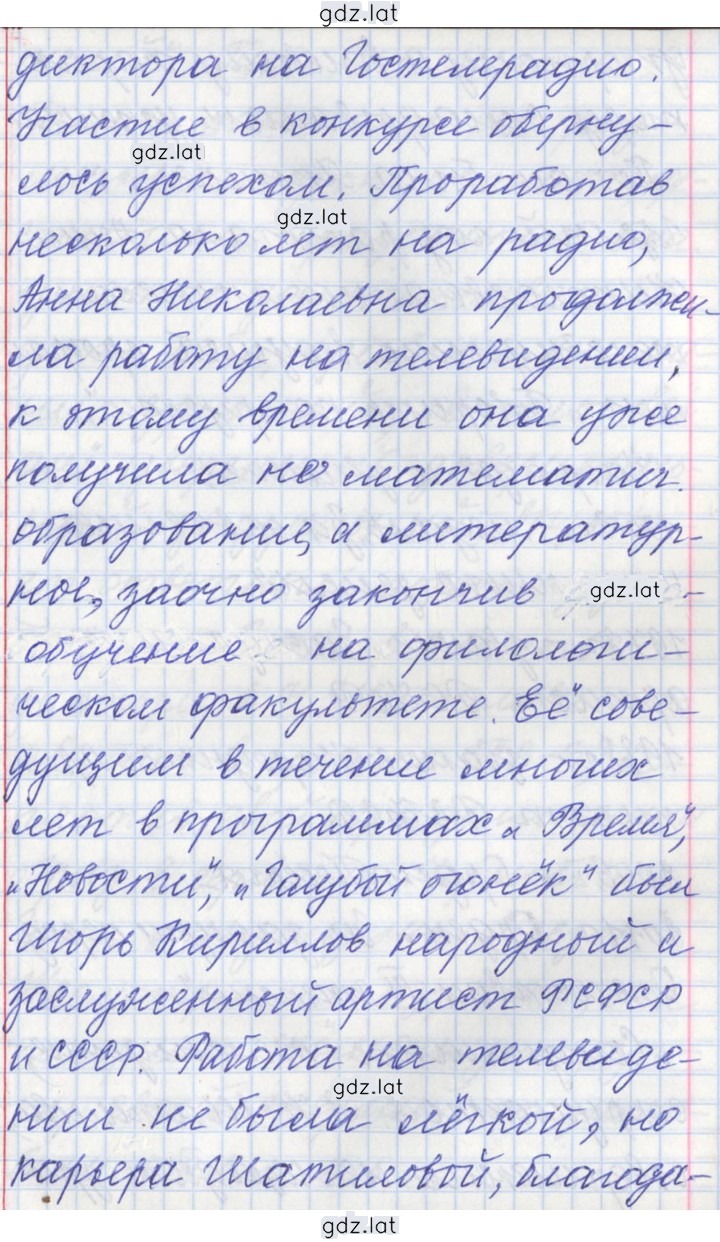 gdz.lat
диктора на Гостелерадио.
Участие в конкурсе оберну-
gdz.lat
лось успехом. Проработав
gdz.lat
несколько лет на радио,
Анна Николаевна продолжи-
ла работу на телевидении,
к этому времени она уже
получила не математич.
образование, а литератур-
ное, заочно закончив gdz.lat -
обучение на филологи-
ческом факультете. Её сове-
дущим в течение многих
лет в программах „Время",
„Новости", „Голубой огонёк" был
Игорь Кириллов народный и
заслуженный артист РСФСР
и СССР. Работа на телевиде-
gdz.lat
нии не была лёгкой, но
карьера Шатиловой, благода-
gdz.lat